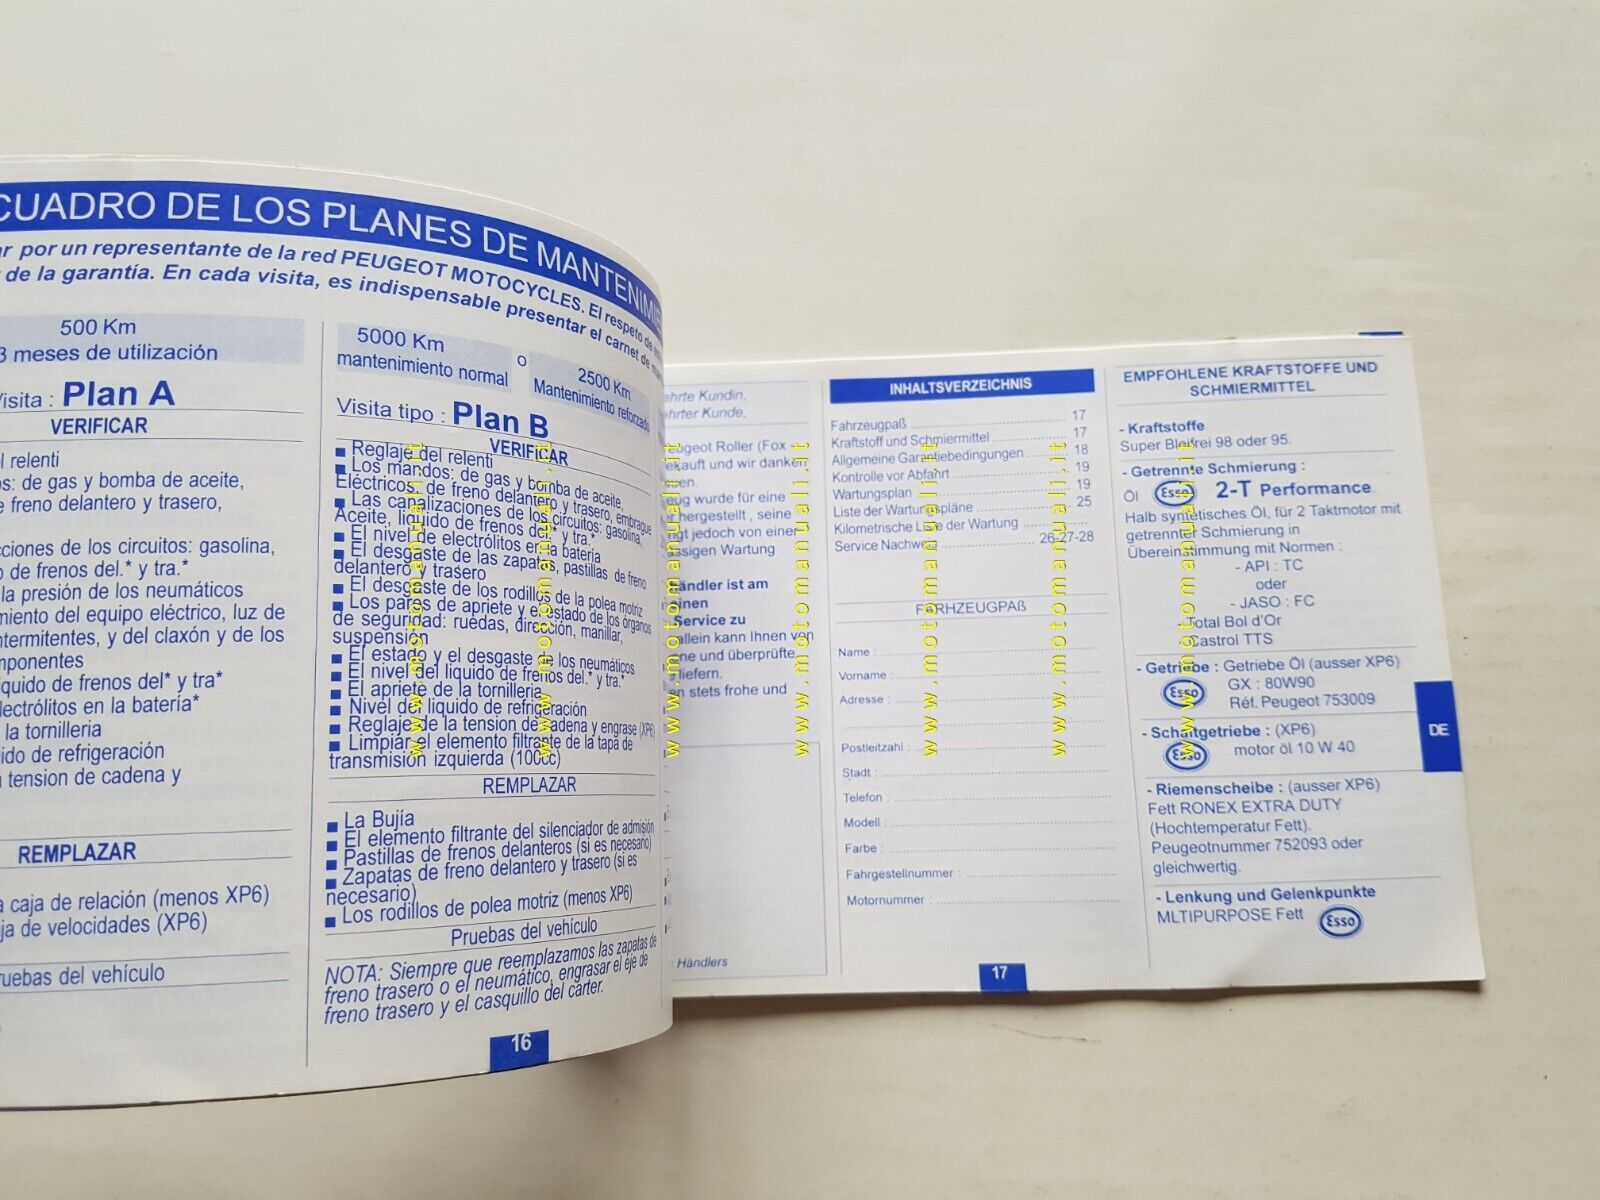 CUADRO DE LOS PLANES DE MANTENIMIE
ar por un representante de la red PEUGEOT MOTOCYCLES. El respeto de
de la garantía. En cada visita, es indispensable presentar el carnet de
500 Km
3 meses de utilización
Visita : Plan A
VERIFICAR
el relenti
os: de gas y bomba de aceite,
e freno delantero y trasero,
cciones de los circuitos: gasolina,
o de frenos del.* y tra.*
la presión de los neumáticos
miento del equipo eléctrico, luz de
ntermitentes, y del claxón y de los
mponentes
íquido de frenos del* y tra*
lectrólitos en la batería*
la tornilleria
ido de refrigeración
a tension de cadena y
REMPLAZAR
a caja de relación (menos XP6)
ja de velocidades (XP6)
ruebas del vehículo
5000 Km
mantenimiento normal
o
2500 Km
Mantenimiento reforzado
Visita tipo : Plan B
VERIFICAR
■ Reglaje del relenti
■ Los mandos: de gas y bomba de aceite,
Eléctricos, de freno delantero y trasero, embrague
■ Las canalizaciones de los circuitos: gasolina,
Aceite, liquido de frenos del.* y tra.*
■ El nivel de electrólitos en la batería
■ El desgaste de las zapatas, pastillas de freno
delantero y trasero
■ El desgaste de los rodillos de la polea motriz
■ Los pares de apriete y el estado de los órganos
de seguridad: ruedas, dirección, manillar,
suspensión
■ El estado y el desgaste de los neumáticos
■ El nivel del liquido de frenos del.* y tra.*
■ El apriete de la tornilleria
■ Nivel del liquido de refrigeración
■ Reglaje de la tension de cadena y engrase (XP6)
■ Limpiar el elemento filtrante de la tapa de
transmisión izquierda (100cc)
REMPLAZAR
■ La Bujía
■ El elemento filtrante del silenciador de admisión
■ Pastillas de frenos delanteros (si es necesario)
■ Zapatas de freno delantero y trasero (si es
necesario)
■ Los rodillos de polea motriz (menos XP6)
Pruebas del vehículo
NOTA: Siempre que reemplazamos las zapatas de
freno trasero o el neumático, engrasar el eje de
freno trasero y el casquillo del cárter.
16
ehrte Kundin,
ehrter Kunde,
eugeot Roller (Fox
ekauft und wir danken
eug wurde für eine
hergestellt , seine
ngt jedoch von einer
ässigen Wartung
ändler ist am
einen
Service zu
allein kann Ihnen von
ne und überprüfte
liefern.
en stets frohe und
Händlers
INHALTSVERZEICHNIS
Fahrzeugpaß 17
Kraftstoff und Schmiermittel 17
Allgemeine Garantiebedingungen 18
Kontrolle vor Abfahrt 19
Wartungsplan 19
Liste der Wartungspläne 25
Kilometrische Liste der Wartung
Service Nachweis 26-27-28
FARHZEUGPAß
Name :
Vorname :
Adresse :
Postleitzahl :
Stadt :
Telefon :
Modell :
Farbe :
Fahrgestellnummer :
Motornummer :
17
EMPFOHLENE KRAFTSTOFFE UND
SCHMIERMITTEL
- Kraftstoffe
Super Bleifrei 98 oder 95.
- Getrennte Schmierung :
Öl Esso 2-T Performance
Halb syntetisches Öl, für 2 Taktmotor mit
getrennter Schmierung in
Übereinstimmung mit Normen :
- API : TC
oder
- JASO : FC
Total Bol d'Or
Castrol TTS
- Getriebe : Getriebe Öl (ausser XP6)
Esso GX : 80W90
Réf. Peugeot 753009
- Schaltgetriebe : (XP6)
Esso motor öl 10 W 40
- Riemenscheibe : (ausser XP6)
Fett RONEX EXTRA DUTY
(Hochtemperatur Fett).
Peugeotnummer 752093 oder
gleichwertig.
- Lenkung und Gelenkpunkte
MLTIPURPOSE Fett Esso
DE
www.motomanuali.it
www.motomanuali.it
www.motomanuali.it
www.motomanuali.it
www.motomanuali.it
www.motomanuali.it
www.motomanuali.it